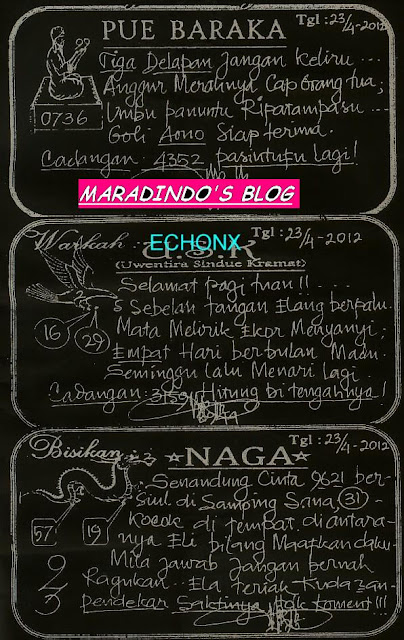 PUE BARAKA
Tgl : 23/4-2012
Tiga Delapan Jangan keliru ...
Anggur Merahnya Cap Orang tua;
Umbu panuntu Riparampasu ....
0736
Goli Aono Siap terima.
Cadangan : 4352, pasintufu lagi!
MARADINDO'S BLOG
Warkah :
ECHONX
Tgl : 23/4-2012
(Uwentira Sindue Kramat)
Selamat pagi tuan !! ....
Sebelah tangan Elang berpalu.
16 29
Mata Melirik Ekor Menyanyi ;
Empat Hari berbulan Madu.
Seminggu lalu Menari lagi
Cadangan : 3159, Hitung Di tengahnya !
Bisikan
NAGA
Tgl : 23/4-2012
Senandung Cinta 9621 ber-
Siul di Samping Sana, 31 -
57 19
Kocok di tempat di antara-
nya Eli bilang Maafkan daku
2
Mila jawab jangan pernah
Ragukan .. Ela teriak Kuda
3
pendekar Saktinya Koment !!!